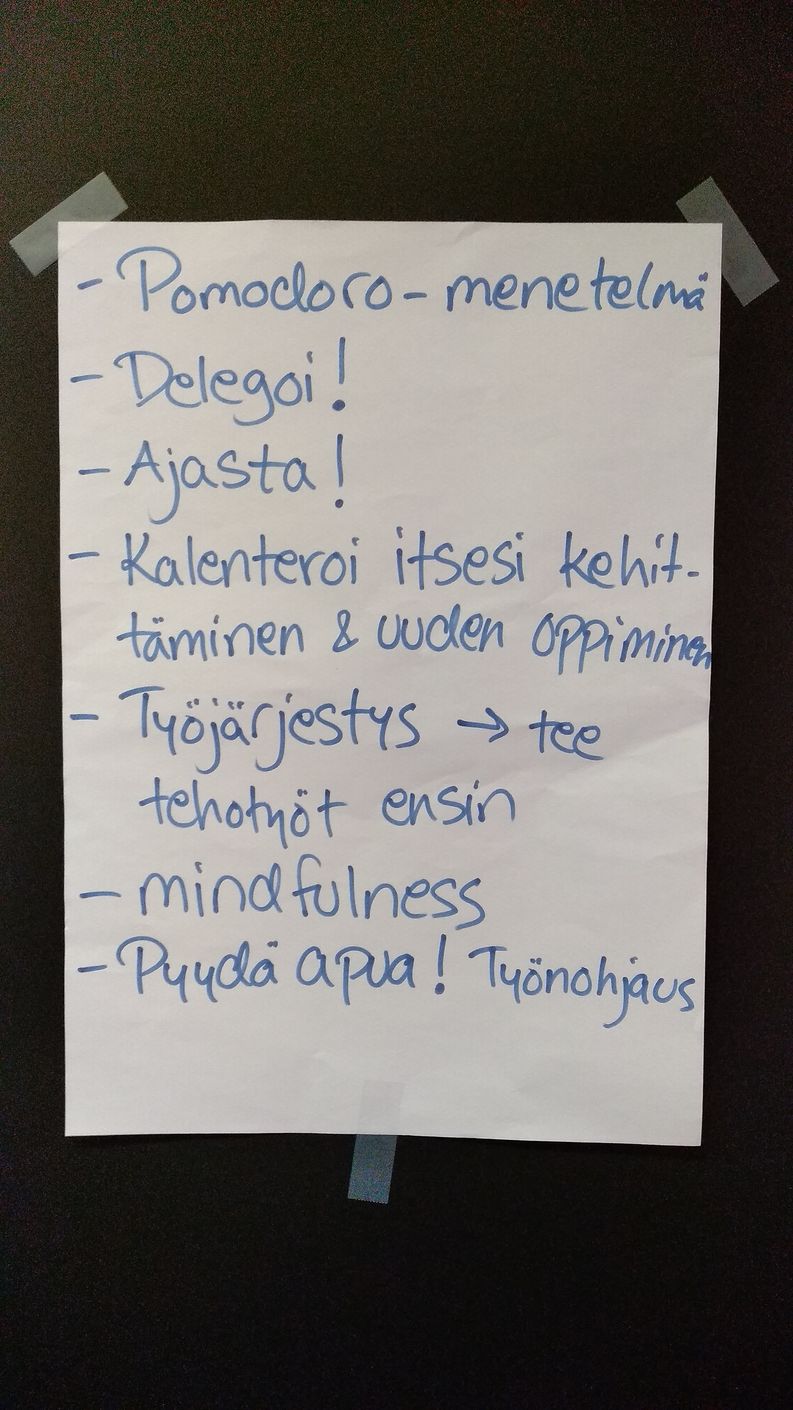 - Pomodoro-menetelmä
- Delegoi!
- Ajasta!
- Kalenteroi itsesi kehit-
täminen & uuden oppiminen
- Työjärjestys → tee
tehotyöt ensin
- mindfulness
- Pyydä apua! Työnohjaus